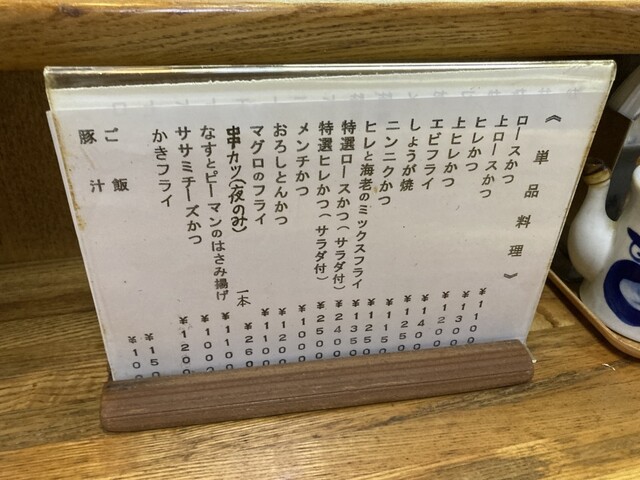 《単品料理》
ロースかつ ¥110
上ロースかつ ¥130
ヒレかつ ¥120
上ヒレかつ ¥140
エビフライ ¥125
しょうが焼 ¥115
ニンニクかつ ¥125
ヒレと海老のミックスフライ ¥135
特選ロースかつ(サラダ付) ¥240
特選ヒレかつ(サラダ付) ¥250
メンチかつ ¥100
おろしとんかつ ¥120
マグロのフライ ¥110
串カツ(夜のみ) 一本 ¥260
なすとピーマンのはさみ揚げ ¥110
ササミチーズかつ ¥100
かきフライ ¥120
ご飯 ¥150
豚汁 ¥100